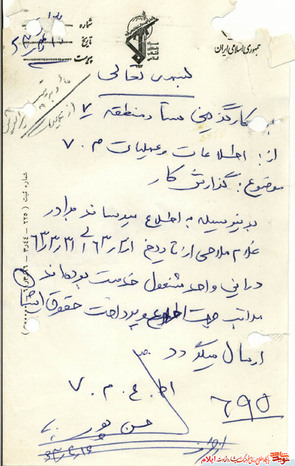 شماره
تاریخ
پیوست
جمهوری اسلامی ایران
بسمه تعالی
به: کارگزینی ستاد منطقه ۷
از: اطلاعات و عملیات م. ۷
موضوع: گزارش کار
بدینوسیله به اطلاع میرساند برادر
غلام ملاحی از تاریخ ۶۳/۳/۱ الی ۶۳/۳/۳۱
در این واحد مشغول خدمت بوده‌اند
مراتب جهت اطلاع و پرداخت حقوق ایشان
ارسال میگردد
اط. ع. م. ۷
۶۹۵
حسن پور